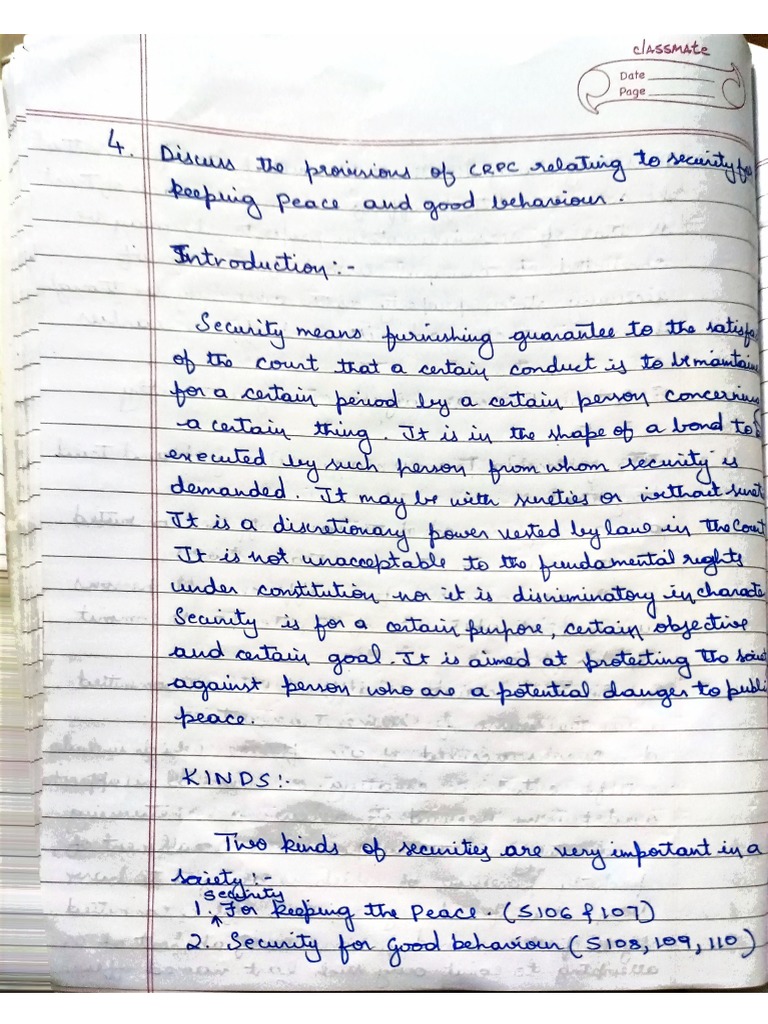 classmate
Date
Page
4. Discuss the provisions of CRPC relating to security for
keeping peace and good behaviour.
Introduction:-
Security means furnishing guarantee to the satisfa
of the court that a certain conduct is to be maintaine
for a certain period by a certain person concerning
a certain thing. It is in the shape of a bond to b
executed by such person from whom security is
demanded. It may be with sureties or without sureti
It is a discretionary power vested by law in the Court
It is not unacceptable to the fundamental rights
under constitution nor it is discriminatory in characte
Security is for a certain purpose, certain objective
and certain goal. It is aimed at protecting the societ
against person who are a potential danger to publi
peace.
KINDS:-
Two kinds of securities are very important in a
society:-
security
1. For keeping the Peace. (S106 & 107)
2. Security for Good behaviour (S108, 109, 110)